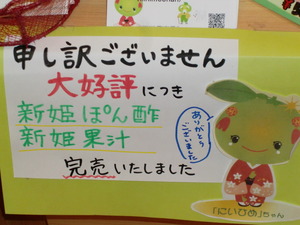 申し訳ございません
大好評につき
新姫ぽん酢
新姫果汁
完売いたしました
ありがとう
ございました
「にいひめ」ちゃん